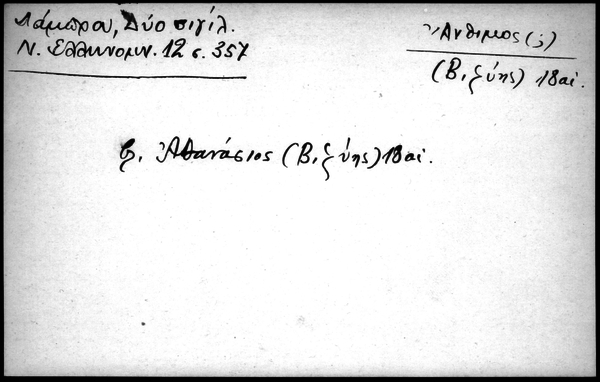 Λάμπρου, Δύο σιγίλ.
Ν. Ελληνομν. 12 σ. 357
Ἄνθιμος (;)
(Βιζύης) 18 αἰ.
β. Ἀθανάσιος (Βιζύης) 18 αἰ.